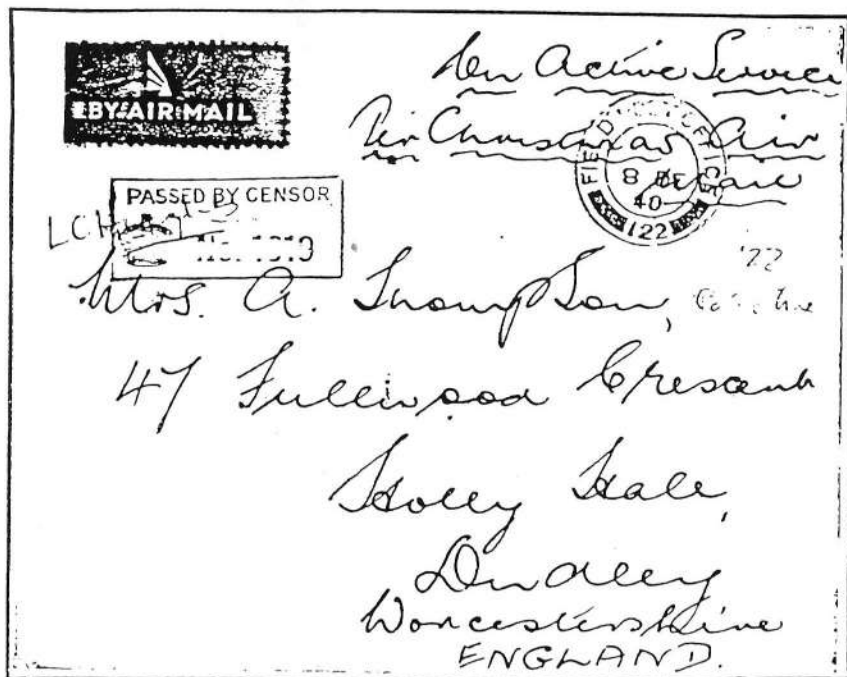 On Active Service
BY AIR MAIL
Per Christmas Air
Mail
FIELD POST OFFICE
8 DE
40
122
PASSED BY CENSOR
No. 1319
Mrs. A. Thompson,
'22
47 Fullwood Crescent
Holly Hall,
Dudley
Worcestershire
ENGLAND.